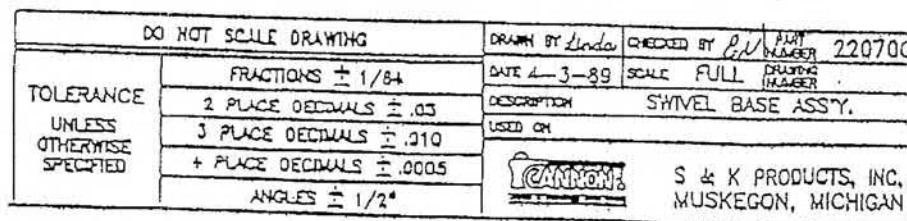 DO NOT SCALE DRAWING
TOLERANCE
UNLESS
OTHERWISE
SPECIFIED
FRACTIONS ± 1/64
2 PLACE DECIMALS ± .03
3 PLACE DECIMALS ± .010
4 PLACE DECIMALS ± .0005
ANGLES ± 1/2°
DRAWN BY Linda CHECKED BY PART NUMBER 220700
DATE 4-3-89 SCALE FULL DRAWING NUMBER
DESCRIPTION SWIVEL BASE ASS'Y.
USED ON
CANNON
S & K PRODUCTS, INC.
MUSKEGON, MICHIGAN